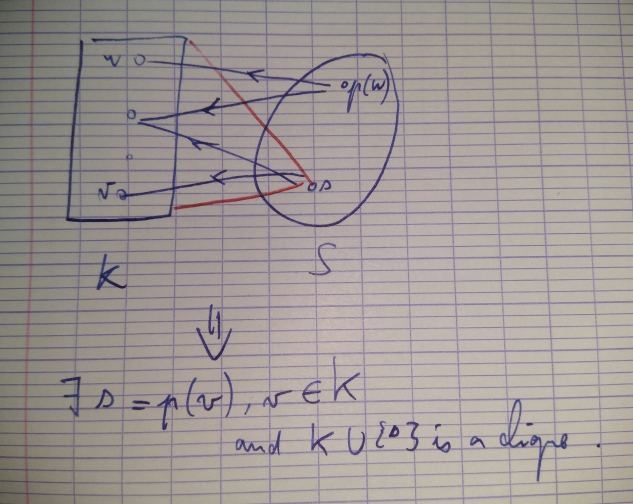 w
p(w)
v
s
K
S
⇓
∃ s = p(v), v ∈ K
and K ∪ {s} is a clique.